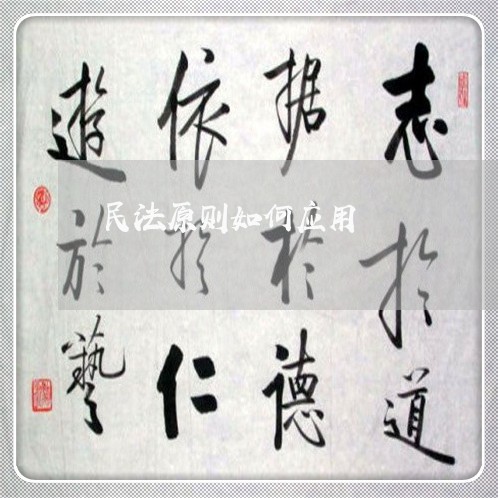 志於道
据於德
依於仁
遊於藝
民法原则如何应用